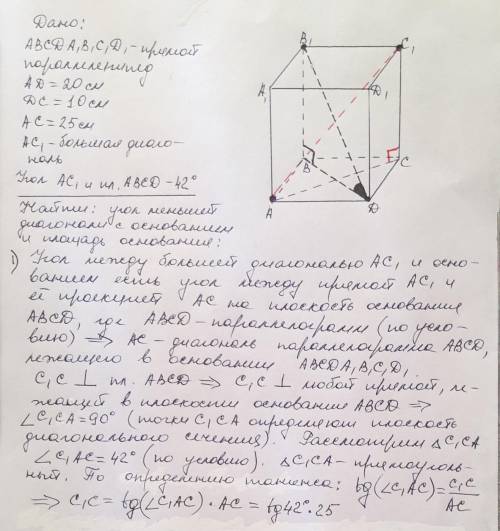 Дано:
ABCDA₁B₁C₁D₁ - прямой
параллелепипед
AD = 20 см
DC = 10 см
AC = 25 см
AC₁ - большая диаго-
наль
Угол AC₁ и пл. ABCD - 42°
Найти: угол меньшей
диагонали с основанием
и площадь основания:
B₁
C₁
A₁
D₁
B
C
A
D
1) Угол между большей диагональю AC₁ и осно-
ванием есть угол между прямой AC₁ и
её проекцией AC на плоскость основания
ABCD, где ABCD - параллелограмм (по усло-
вию) ⇒ AC - диагональ параллелограмма ABCD,
лежащего в основании ABCDA₁B₁C₁D₁.
C₁C ⊥ пл. ABCD ⇒ C₁C ⊥ любой прямой, ле-
жащей в плоскости основания ABCD ⇒
∠C₁CA = 90° (точки C₁CA определяют плоскость
диагонального сечения). Рассмотрим △C₁CA
∠C₁AC = 42° (по условию). △C₁CA - прямоуголь-
ный. По определению тангенса: tg(∠C₁AC) = C₁C/AC
⇒ C₁C = tg(∠C₁AC) · AC = tg42° · 25